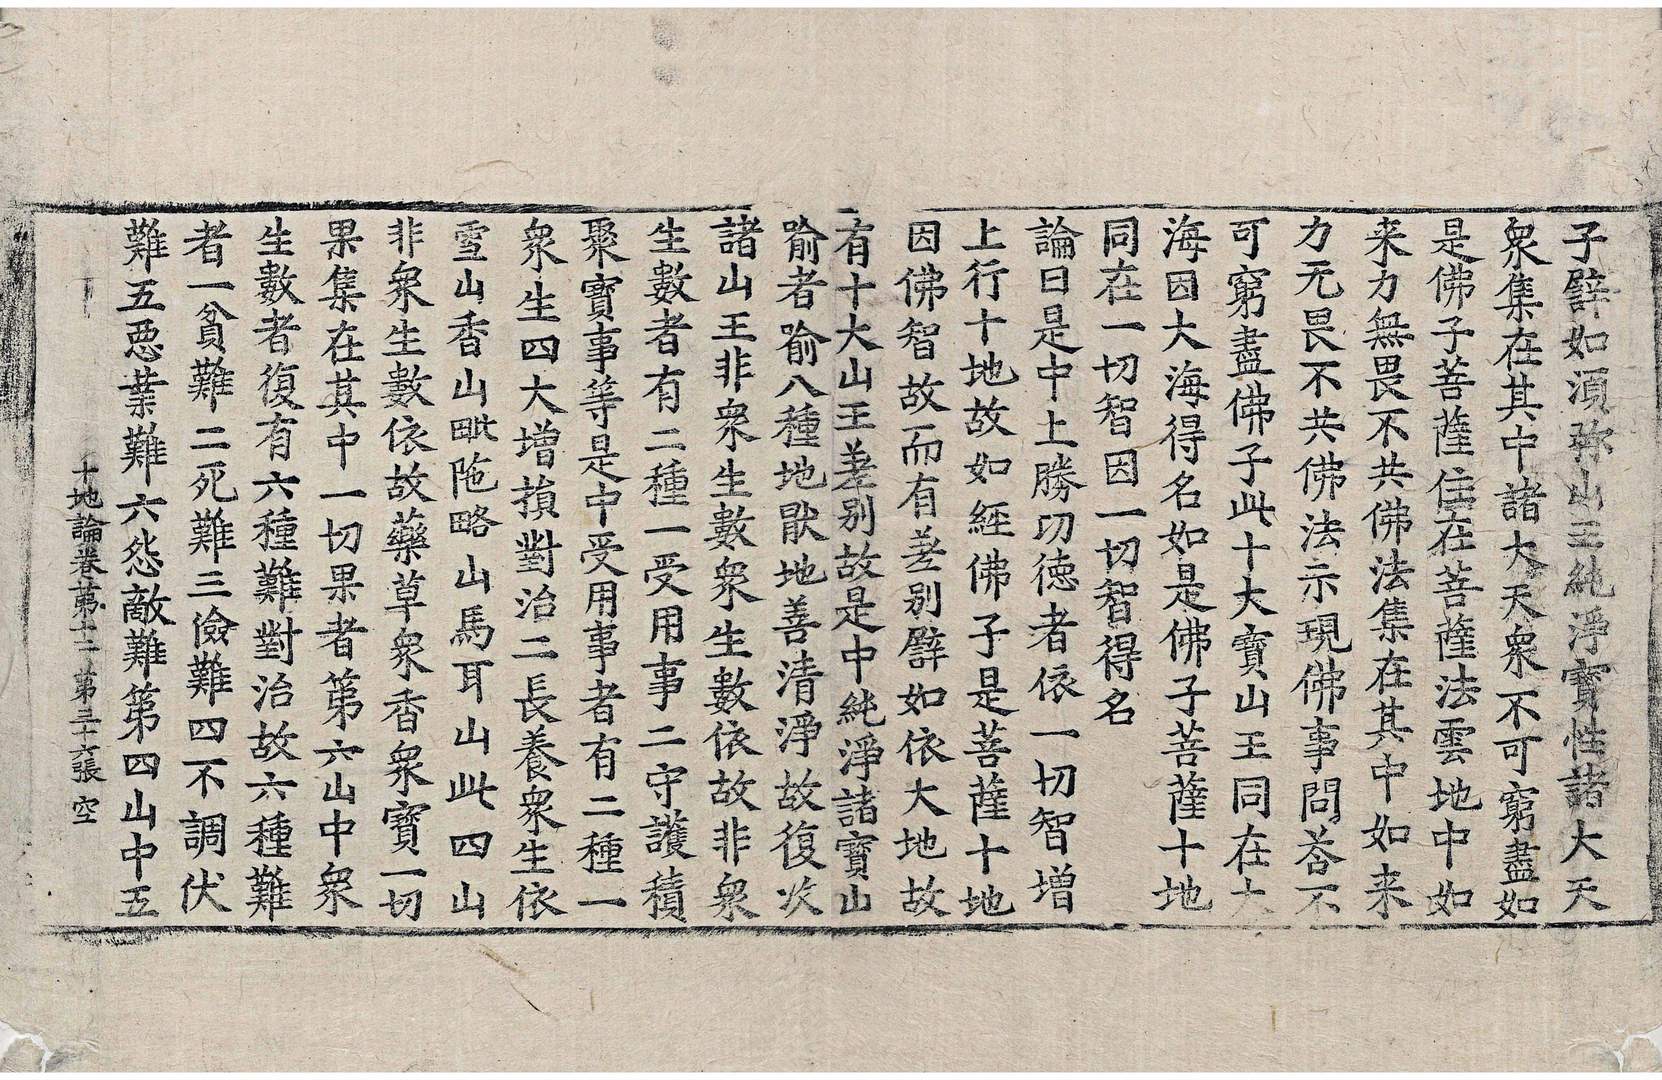 子譬如湏弥山王純淨寶性諸大天
衆集在其中諸大天衆不可窮盡如
是佛子菩薩住在菩薩法雲地中如
来力無畏不共佛法集在其中如来
力无畏不共佛法示現佛事問荅不
可窮盡佛子此十大寶山王同在大
海因大海得名如是佛子菩薩十地
同在一切智因一切智得名
論曰是中上勝功德者依一切智增
上行十地故如經佛子是菩薩十地
因佛智故而有差別譬如依大地故
有十大山王差别故是中純淨諸寶山
喻者喻八種地猒地善清淨故復次
諸山王非衆生數衆生數依故非衆
生數者有二種一受用事二守護積
聚寶事等是中受用事者有二種一
衆生四大增損對治二長養衆生依
雪山香山毗陁略山馬耳山此四山
非衆生數依故藥草衆香衆寶一切
果集在其中一切果者第六山中衆
生數者復有六種難對治故六種難
者一貧難二死難三儉難四不調伏
難五惡業難六怨敵難第四山中五
十地論卷第十二 第三十六張 空